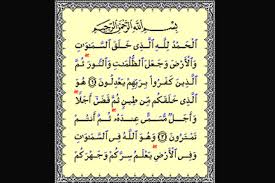 بِسْمِ اللَّهِ الرَّحْمَٰنِ الرَّحِيمِ
الْحَمْدُ لِلَّهِ الَّذِي خَلَقَ السَّمَٰوَٰتِ
وَالْأَرْضَ وَجَعَلَ الظُّلُمَٰتِ وَالنُّورَ ثُمَّ
الَّذِينَ كَفَرُوا بِرَبِّهِمْ يَعْدِلُونَ ۝ هُوَ
الَّذِي خَلَقَكُم مِّن طِينٍ ثُمَّ قَضَىٰ أَجَلًا
وَأَجَلٌ مُّسَمًّى عِندَهُ ثُمَّ أَنتُمْ
تَمْتَرُونَ ۝ وَهُوَ اللَّهُ فِي السَّمَٰوَٰتِ
وَفِي الْأَرْضِ يَعْلَمُ سِرَّكُمْ وَجَهْرَكُمْ